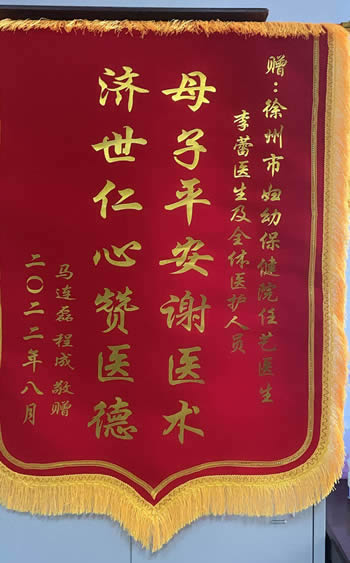 赠：徐州市妇幼保健院任艺医生
李蕾医生及全体医护人员
母子平安谢医术
济世仁心赞医德
马连磊 程成 敬赠
二〇二二年八月